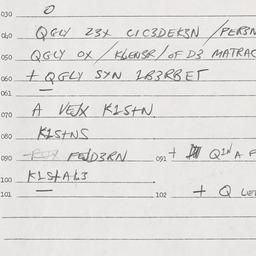 030 0
040 QGLY 23X CIC3DEK3N /PER3N
050 QGLY OX /KLENSR/OF D3 MATRAC
060 + QGLY SYN 1B3RBET
061
070 A VEJX K1S+N
080 K1S+NS
090 FEJD3RN 091 + Q1N A F
100 K1S+AL3
101 102 + Q LE